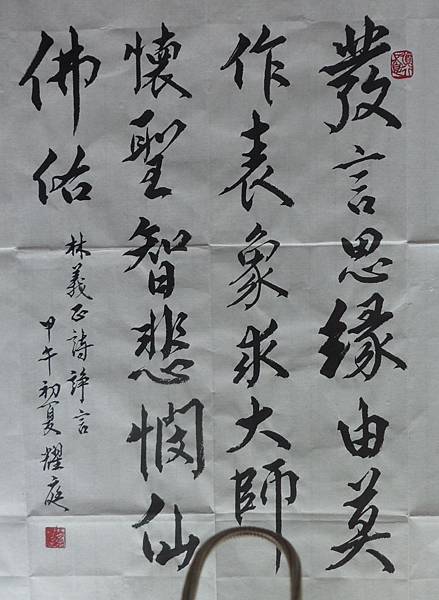 發言思緣由莫
作表象求大師
懷聖智悲憫仙
佛佑
林義正詩諍言
甲午初夏耀庭